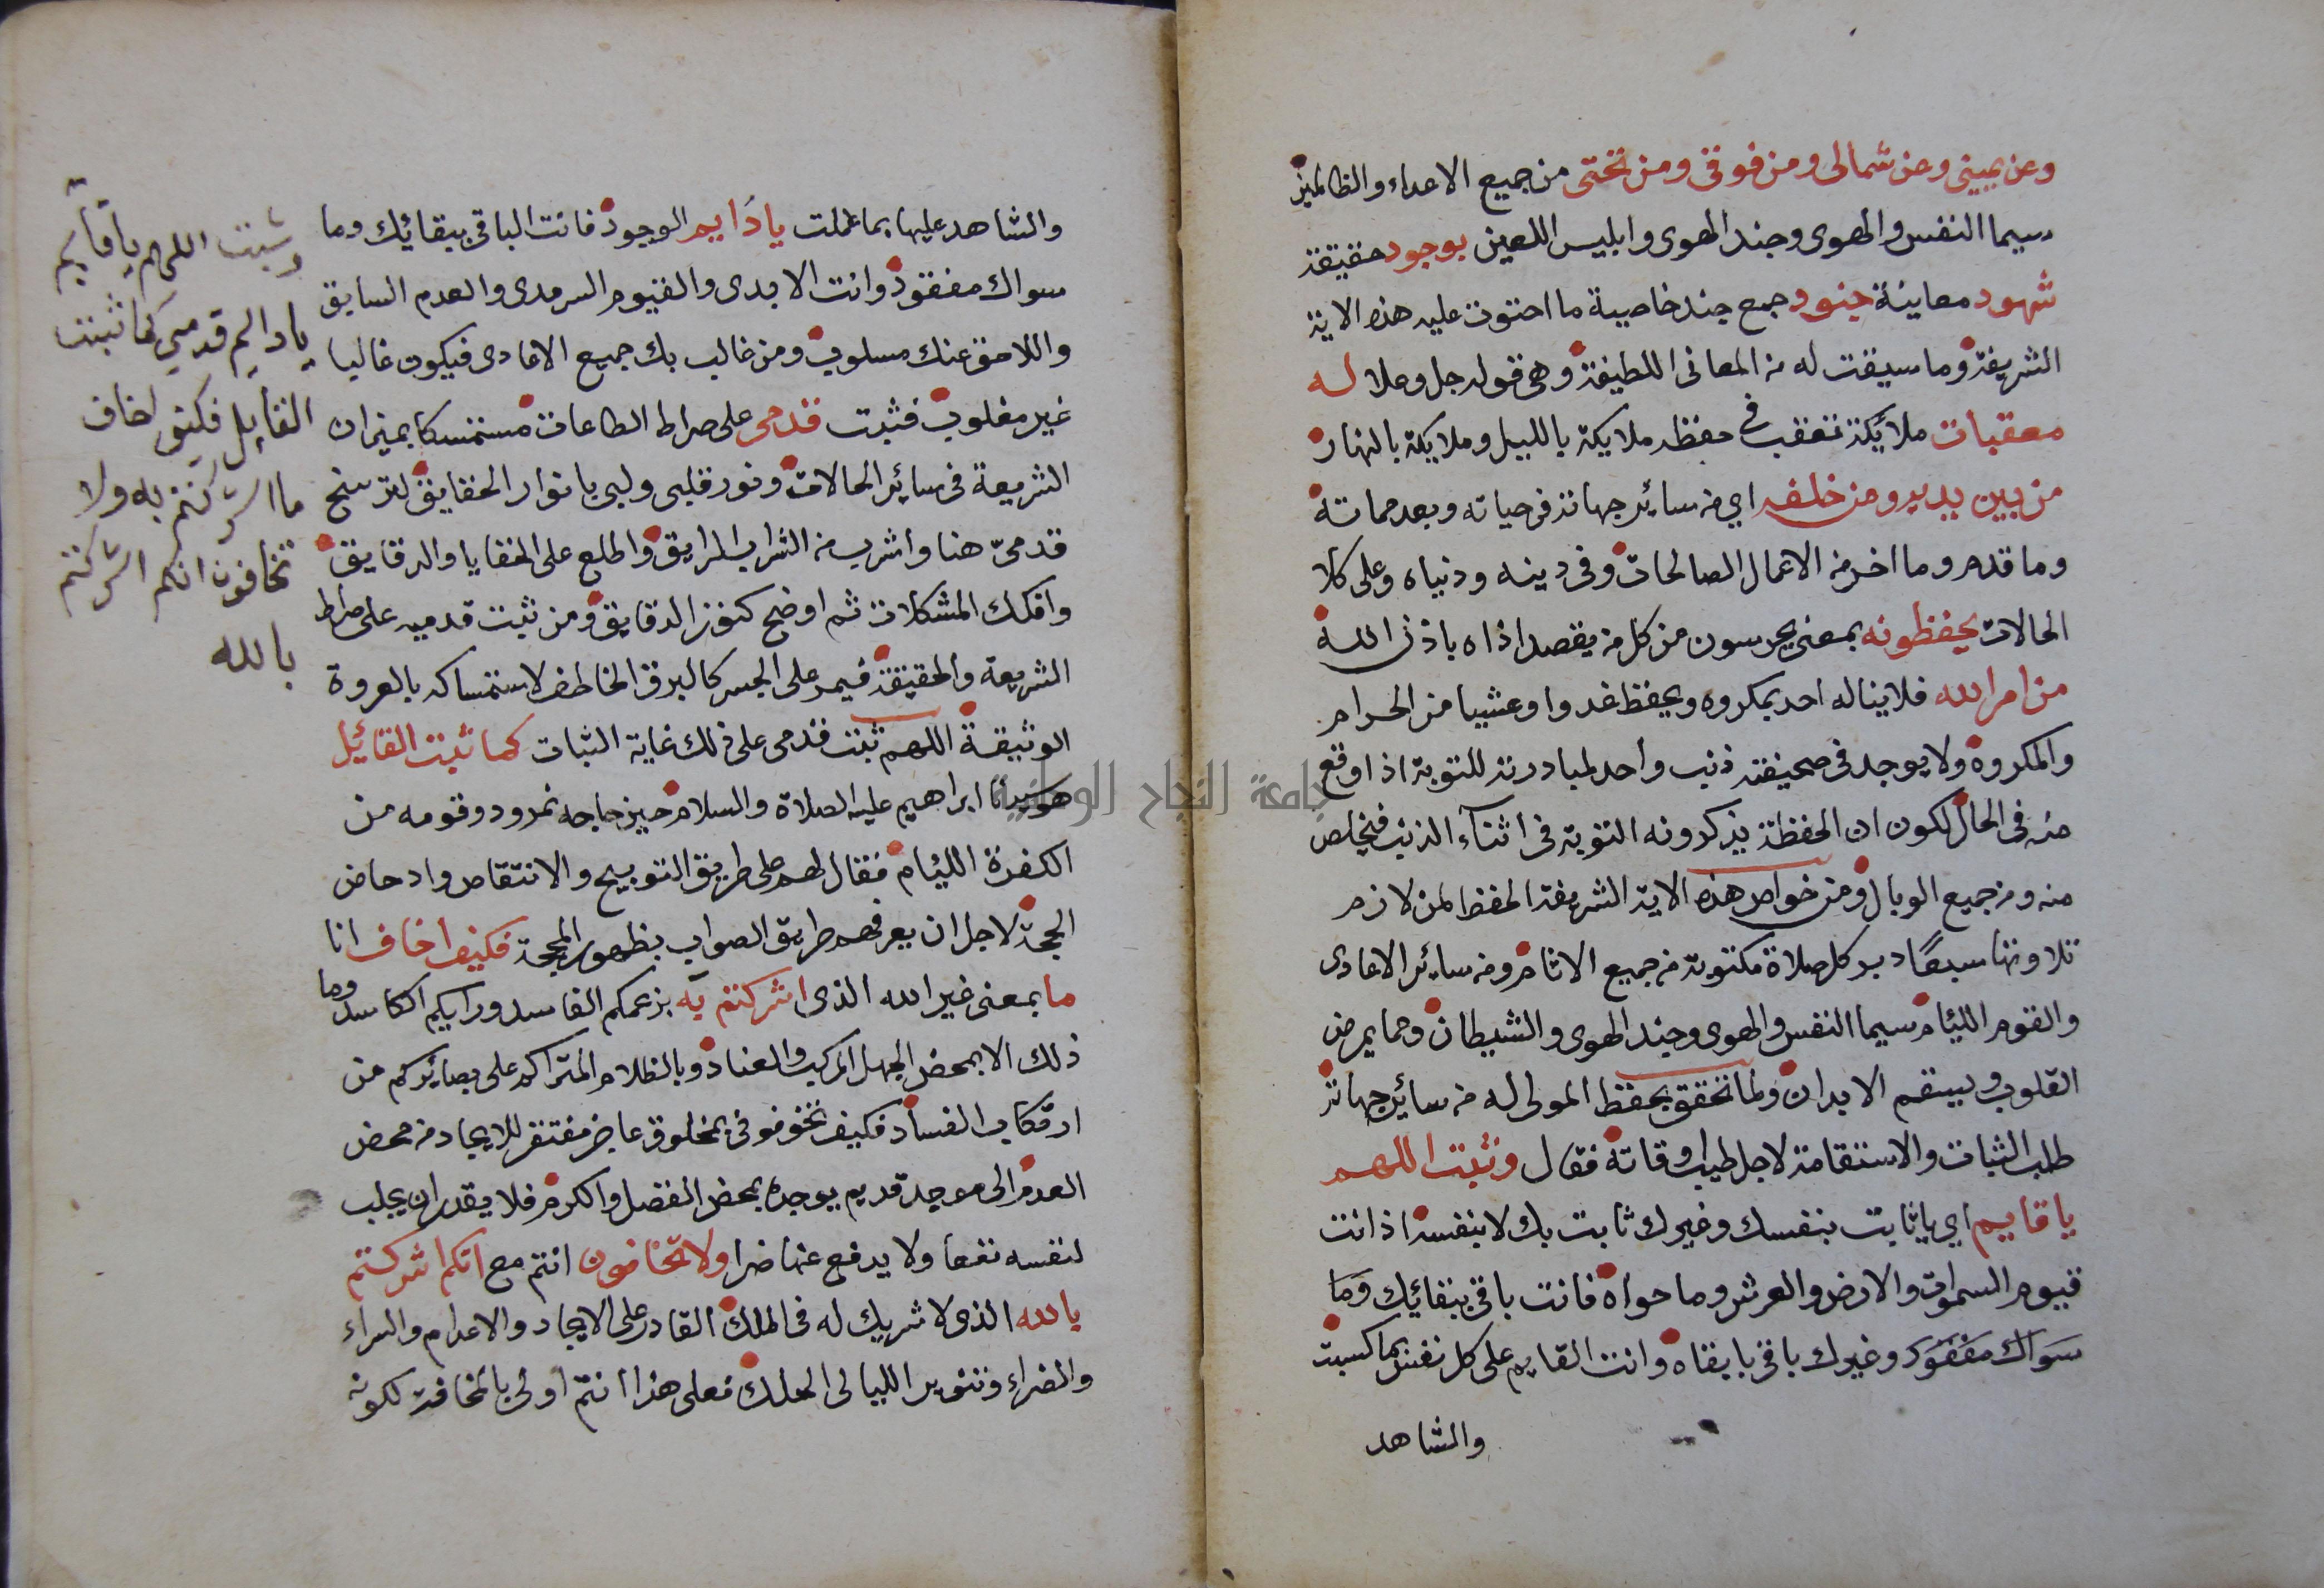 وعن يميني وعن شمالى ومن فوقى ومن تحتى من جميع الاعداء والظالمين
سيما النفس والهوى وجند الهوى وابليس اللعين بوجود حقيقة
شهود معاينة جنود جمع جند خاصية ما احتوت عليه هذه الاية
الشريفة وما سيقت له من المعانى اللطيفة وهى قوله جل وعلا له
معقبات ملائكة تتعقب فى حفظه ملايكة بالليل وملايكة بالنهار
من بين يديه ومن خلفه اي من سائر جهاته فى حياته وبعد مماته
وما قدم وما اخر من الاعمال الصالحات وفى دينه ودنياه وعلى كلا
الحالات يحفظونه بمعنى يحرسون من كل من يقصد اذاه باذن الله
من امر الله فلا يناله احد بمكروه ويحفظ غدوا وعشيا من الحرام
والمكروه ولا يوجد فى صحيفته ذنب واحد لمبادرته للتوبة اذا وقع
منه فى الحال لكون ان الحفظة يذكرونه التوبة فى اثناء الذنب فيخلص
منه ومن جميع الوبال ومن خواص هذه الاية الشريفة الحفظ لمن لازم
تلاوتها سبعًا دبر كل صلاة مكتوبة من جميع الاثام ومن سائر الاعادى
والقوم اللئام سيما النفس والهوى وجند الهوى والشيطان ومما يمرض
القلوب ويسقم الابدان ولما تحقق بحفظ المولى له من سائر جهاته
طلب الثبات والاستقامة لاجل طيب اوقاته فقال وثبت اللهم
يا قايم اي يا ثابت بنفسك وغيرك ثابت بك لا بنفسه اذ انت
قيوم السموات والارض والعرش وما حواه فانت باقى ببقائك وما
سواك مفقود وغيرك باقى بابقاه وانت القايم على كل نفس بما كسبت
والشاهد
والشاهد عليها بما عملت يا دايم الوجود فانت الباقى ببقائك وما
سواك مفقود وانت الابدى والقيوم السرمدى والعدم السابق
واللاحق عنك مسلوب ومن غالب بك جميع الاعادى فيكون غالبا
غير مغلوب فثبت قدمى على صراط الطاعات مستمسكا بميزان
الشريعة فى سائر الحالات ونور قلبى ولبى بانوار الحقايق لترسخ
قدمى هنا واشرب من الشراب الرايق واطلع على الخفايا والدقايق
وافكك المشكلات ثم اوضح كنوز الدقايق ومن ثبت قدميه على صراط
الشريعة والحقيقة فيمر على الجسر كالبرق الخاطف لاستمساكه بالعروة
الوثيقة اللهم ثبت قدمى على ذلك غاية الثبات كما ثبت القائل
هو سيدنا ابراهيم عليه الصلاة والسلام حين حاجه نمرود وقومه من
الكفرة اللئام فقال لهم على طريق التوبيح والانتقاص وادحاض
الحجة لاجل ان يعرفهم طريق الصواب بظهور المحجة فكيف اخاف انا
ما بمعنى غير الله الذى اشركتم به بزعمكم الفاسد ورايكم الكاسد وما
ذلك الا بمحض الجهل المركب والعناد وبالظلام المتراكم على بصائركم من
ارتكاب الفساد فكيف تخوفونى بمخلوق عاجز مفتقر للايجاد من محض
العدم الى موجد قديم يوجده بمحض الفضل والكرم فلا يقدر ان يجلب
لنفسه نفعا ولا يدفع عنها ضرا ولا تخافون انتم مع انكم اشركتم
بالله الذى لا شريك له فى الملك القادر على الايجاد والاعدام والسراء
والضراء وتنوير الليالى الحلك فعلى هذا انتم اولى بالمخافة لكونه
وثبت اللهم يا قايم
يا دايم قدمي كما ثبت
القايل فكيف اخاف
ما اشركتم به ولا
تخافون انكم اشركتم
بالله
جامعة النجاح الوطنية